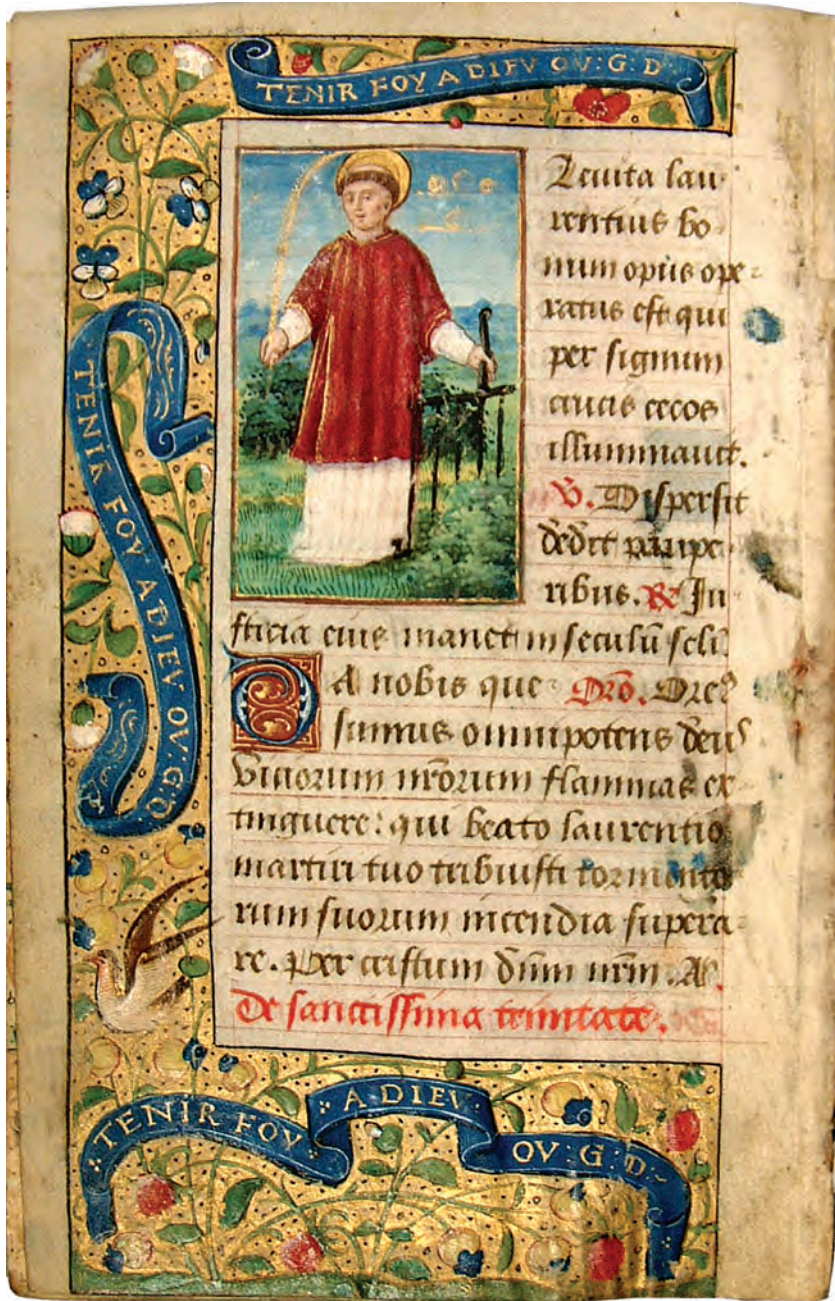 TENIR FOY A DIEV OV:G:D
TENIR FOY ADIEV OV:G:D
Leuita lau
rentius bo
num opus ope
ratus est qui
per signum
crucis cecos
illuminauit.
V. Dispersit
dedit paupe
ribus. R Ju
sticia eius manet in seculū scl̄i
Da nobis que Oro. Ore
sumus omnipotens deus
viciorum nr̄orum flammas ex
tinguere: qui beato laurentio
martiri tuo tribuisti tormento
rum suorum incendia supera
re. Per cristum dn̄m nr̄m. A.
De sanctissima trinitate.
TENIR FOY A DIEV OV:G:D